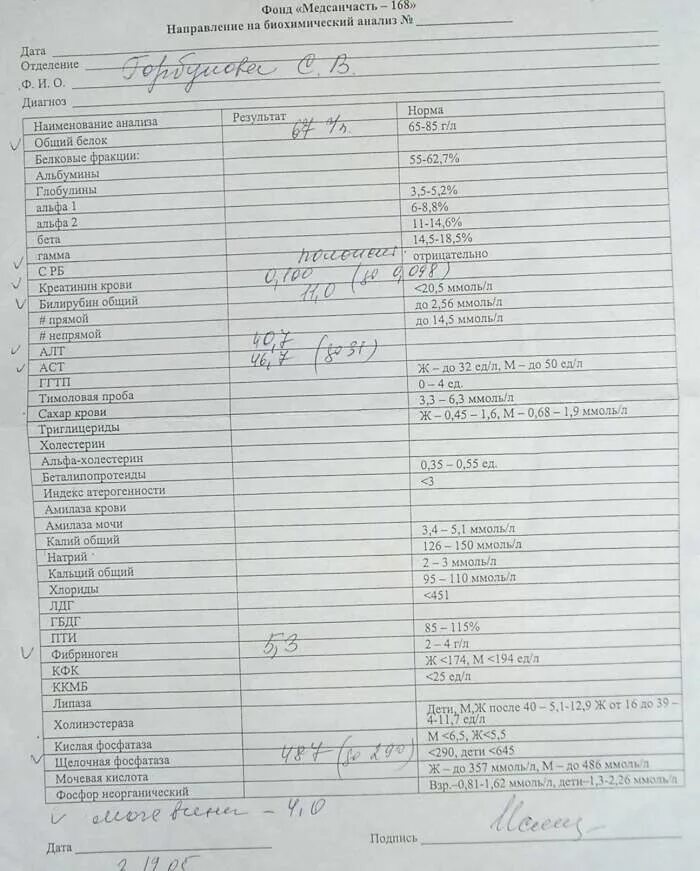 Фонд «Медсанчасть – 168»
Направление на биохимический анализ №
Дата
Отделение
Ф. И. О. Горбунова С. В.
Диагноз
Наименование анализа Результат Норма
Общий белок 67 г/л 65-85 г/л
Белковые фракции:
Альбумины 55-62,7%
Глобулины
альфа 1 3,5-5,2%
альфа 2 6-8,8%
бета 11-14,6%
гамма 14,5-18,5%
С РБ отрицательно
Креатинин крови 0,100 (до 0,098)
Билирубин общий 11,0 <20,5 ммоль/л
# прямой до 2,56 ммоль/л
# непрямой до 14,5 ммоль/л
АЛТ 40,7
АСТ 46,7 (до 31)
ГГТП Ж – до 32 ед/л, М – до 50 ед/л
Тимоловая проба 0 – 4 ед.
Сахар крови 3,3 – 6,3 ммоль/л
Триглицериды Ж – 0,45 – 1,6, М – 0,68 – 1,9 ммоль/л
Холестерин
Альфа-холестерин
Беталипопротеиды 0,35 – 0,55 ед.
Индекс атерогенности <3
Амилаза крови
Амилаза мочи
Калий общий 3,4 – 5,1 ммоль/л
Натрий 126 – 150 ммоль/л
Кальций общий 2 – 3 ммоль/л
Хлориды 95 – 110 ммоль/л
ЛДГ <451
ГБДГ
ПТИ 85 – 115%
Фибриноген 5,3 2 – 4 г/л
КФК Ж <174, М <194 ед/л
ККМБ <25 ед/л
Липаза
Холинэстераза Дети, М,Ж после 40 – 5,1-12,9 Ж от 16 до 39 –
4-11,7 ед/л
Кислая фосфатаза М <6,5, Ж<5,5
Щелочная фосфатаза 487 (до 290) <290, дети <645
Мочевая кислота Ж – до 357 ммоль/л, М – до 486 ммоль/л
Фосфор неорганический Взр.–0,81-1,62 ммоль/л, дети–1,3-2,26 ммоль/л
мочевина – 4,0
Дата Подпись